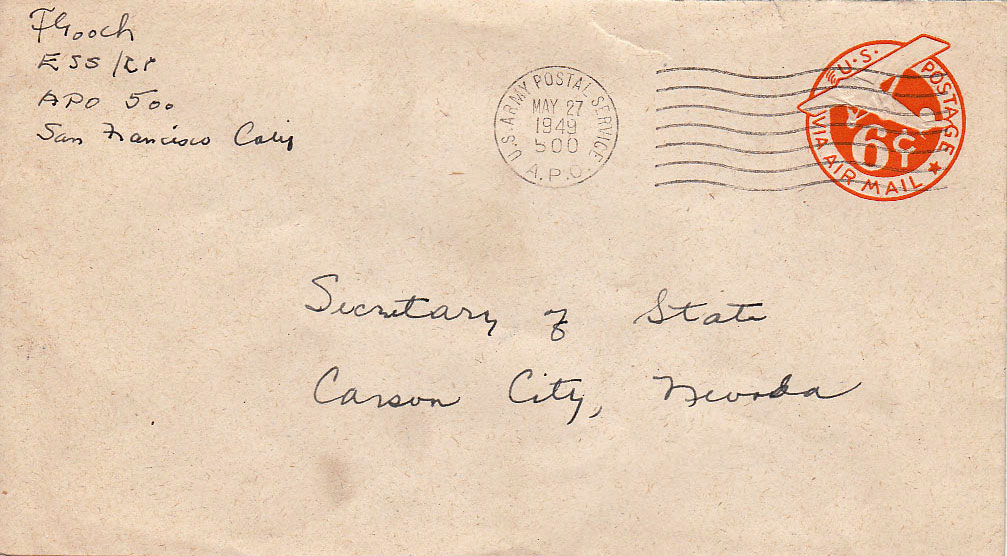 F Gooch
ESS/
APO 500
San Francisco Calif
U.S. ARMY POSTAL SERVICE
MAY 27
1949
500
A.P.O.
U.S. POSTAGE
6 C
VIA AIR MAIL
Secretary of State
Carson City, Nevada